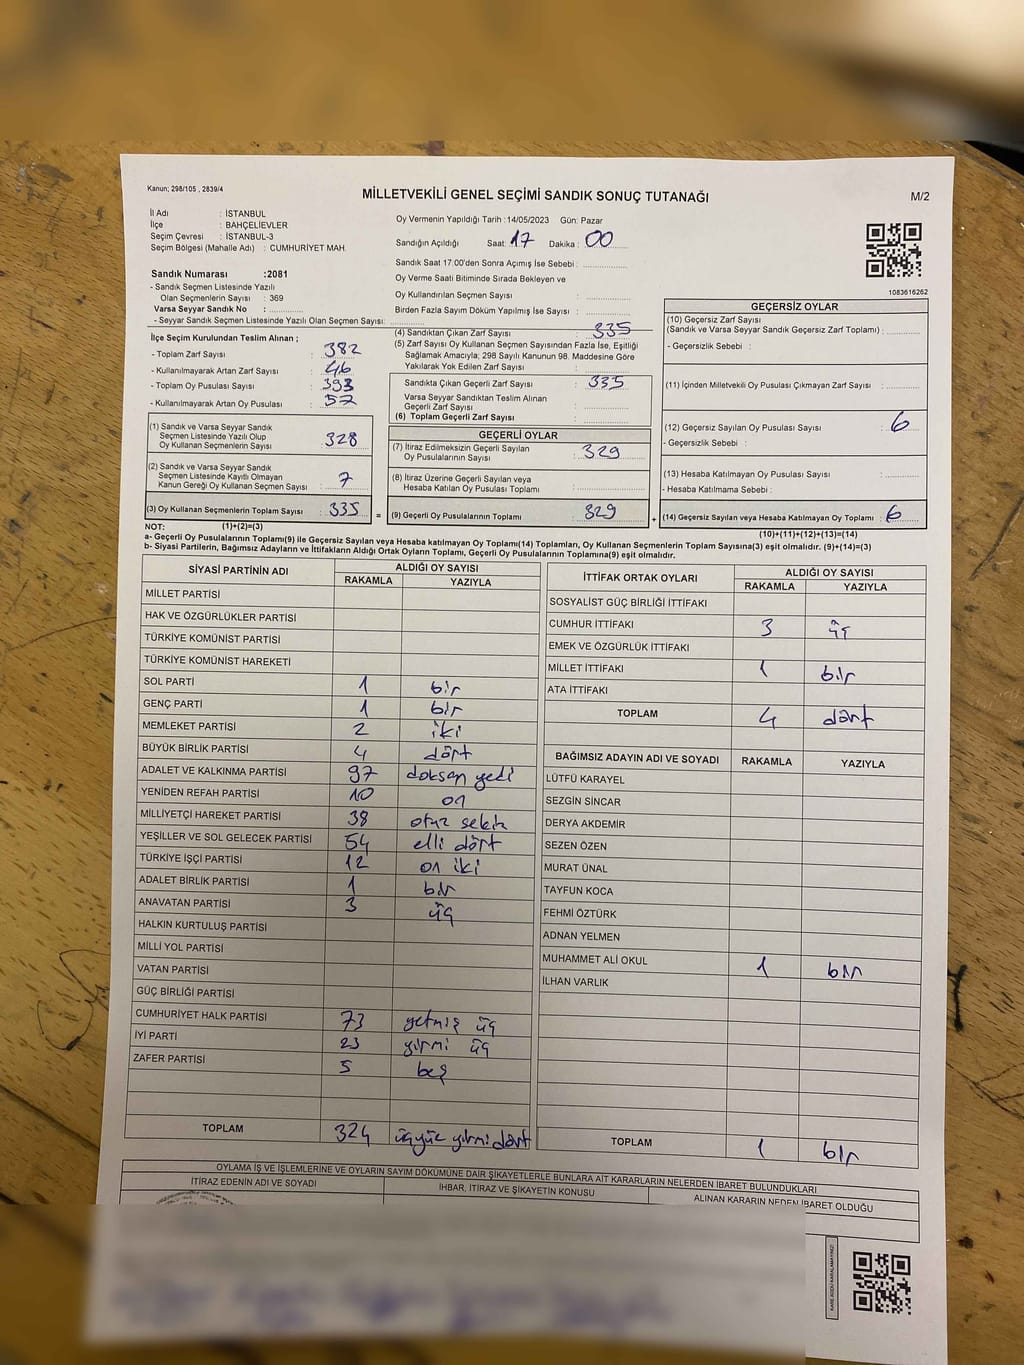 Kanun; 298/105 , 2839/4
MİLLETVEKİLİ GENEL SEÇİMİ SANDIK SONUÇ TUTANAĞI
M/2
İl Adı : İSTANBUL
İlçe : BAHÇELİEVLER
Seçim Çevresi : İSTANBUL-3
Seçim Bölgesi (Mahalle Adı) : CUMHURİYET MAH.
Oy Vermenin Yapıldığı Tarih : 14/05/2023 Gün: Pazar
Sandığın Açıldığı Saat: 17 Dakika : 00
Sandık Saat 17:00'den Sonra Açımış İse Sebebi :
Oy Verme Saati Bitiminde Sırada Bekleyen ve
Oy Kullandırılan Seçmen Sayısı :
Birden Fazla Sayım Döküm Yapılmış İse Sayısı :
1083616262
Sandık Numarası :2081
- Sandık Seçmen Listesinde Yazılı
Olan Seçmenlerin Sayısı : 369
Varsa Seyyar Sandık No :
- Seyyar Sandık Seçmen Listesinde Yazılı Olan Seçmen Sayısı:
İlçe Seçim Kurulundan Teslim Alınan ;
- Toplam Zarf Sayısı : 382
- Kullanılmayarak Artan Zarf Sayısı : 46
- Toplam Oy Pusulası Sayısı : 393
- Kullanılmayarak Artan Oy Pusulası : 57
(1) Sandık ve Varsa Seyyar Sandık
Seçmen Listesinde Yazılı Olup
Oy Kullanan Seçmenlerin Sayısı : 328
(2) Sandık ve Varsa Seyyar Sandık
Seçmen Listesinde Kayıtlı Olmayan
Kanun Gereği Oy Kullanan Seçmen Sayısı : 7
(3) Oy Kullanan Seçmenlerin Toplam Sayısı : 335
(4) Sandıktan Çıkan Zarf Sayısı : 335
(5) Zarf Sayısı Oy Kullanan Seçmen Sayısından Fazla İse, Eşitliği
Sağlamak Amacıyla; 298 Sayılı Kanunun 98. Maddesine Göre
Yakılarak Yok Edilen Zarf Sayısı :
Sandıkta Çıkan Geçerli Zarf Sayısı : 335
Varsa Seyyar Sandıktan Teslim Alınan
Geçerli Zarf Sayısı :
(6) Toplam Geçerli Zarf Sayısı :
GEÇERLİ OYLAR
(7) İtiraz Edilmeksizin Geçerli Sayılan
Oy Pusulalarının Sayısı : 329
(8) İtiraz Üzerine Geçerli Sayılan veya
Hesaba Katılan Oy Pusulası Toplamı :
= (9) Geçerli Oy Pusulalarının Toplamı : 329
GEÇERSİZ OYLAR
(10) Geçersiz Zarf Sayısı
(Sandık ve Varsa Seyyar Sandık Geçersiz Zarf Toplamı) :
- Geçersizlik Sebebi :
(11) İçinden Milletvekili Oy Pusulası Çıkmayan Zarf Sayısı :
(12) Geçersiz Sayılan Oy Pusulası Sayısı : 6
- Geçersizlik Sebebi :
(13) Hesaba Katılmayan Oy Pusulası Sayısı :
- Hesaba Katılmama Sebebi :
+ (14) Geçersiz Sayılan veya Hesaba Katılmayan Oy Toplamı : 6
NOT: (1)+(2)=(3)
(10)+(11)+(12)+(13)=(14)
a- Geçerli Oy Pusulaları Toplamı(9) ile Geçersiz Sayılan veya Hesaba katılmayan Oy Toplamı(14) Toplamları, Oy Kullanan Seçmenlerin Toplam Sayısına(3) eşit olmalıdır. (9)+(14)=(3)
b- Siyasi Partilerin, Bağımsız Adayların ve İttifakların Aldığı Ortak Oyların Toplamı, Geçerli Oy Pusulalarının Toplamına(9) eşit olmalıdır.
SİYASİ PARTİNİN ADI ALDIĞI OY SAYISI
RAKAMLA YAZIYLA
MİLLET PARTİSİ
HAK VE ÖZGÜRLÜKLER PARTİSİ
TÜRKİYE KOMÜNİST PARTİSİ
TÜRKİYE KOMÜNİST HAREKETİ
SOL PARTİ 1 bir
GENÇ PARTİ 1 bir
MEMLEKET PARTİSİ 2 iki
BÜYÜK BİRLİK PARTİSİ 4 dört
ADALET VE KALKINMA PARTİSİ 97 doksan yedi
YENİDEN REFAH PARTİSİ 10 on
MİLLİYETÇİ HAREKET PARTİSİ 38 otuz sekiz
YEŞİLLER VE SOL GELECEK PARTİSİ 54 elli dört
TÜRKİYE İŞÇİ PARTİSİ 12 on iki
ADALET BİRLİK PARTİSİ 1 bir
ANAVATAN PARTİSİ 3 üç
HALKIN KURTULUŞ PARTİSİ
MİLLİ YOL PARTİSİ
VATAN PARTİSİ
GÜÇ BİRLİĞİ PARTİSİ
CUMHURİYET HALK PARTİSİ 73 yetmiş üç
İYİ PARTİ 23 yirmi üç
ZAFER PARTİSİ 5 beş
TOPLAM 324 üçyüz yirmi dört
İTTİFAK ORTAK OYLARI ALDIĞI OY SAYISI
RAKAMLA YAZIYLA
SOSYALİST GÜÇ BİRLİĞİ İTTİFAKI
CUMHUR İTTİFAKI 3 üç
EMEK VE ÖZGÜRLÜK İTTİFAKI
MİLLET İTTİFAKI 1 bir
ATA İTTİFAKI
TOPLAM 4 dört
BAĞIMSIZ ADAYIN ADI VE SOYADI RAKAMLA YAZIYLA
LÜTFÜ KARAYEL
SEZGİN SİNCAR
DERYA AKDEMİR
SEZEN ÖZEN
MURAT ÜNAL
TAYFUN KOCA
FEHMİ ÖZTÜRK
ADNAN YELMEN
MUHAMMET ALİ OKUL 1 bir
İLHAN VARLIK
TOPLAM 1 bir
OYLAMA İŞ VE İŞLEMLERİNE VE OYLARIN SAYIM DÖKÜMÜNE DAİR ŞİKAYETLERLE BUNLARA AİT KARARLARIN NELERDEN İBARET BULUNDUKLARI
İTİRAZ EDENİN ADI VE SOYADI İHBAR, İTİRAZ VE ŞİKAYETİN KONUSU ALINAN KARARIN NEDEN İBARET OLDUĞU